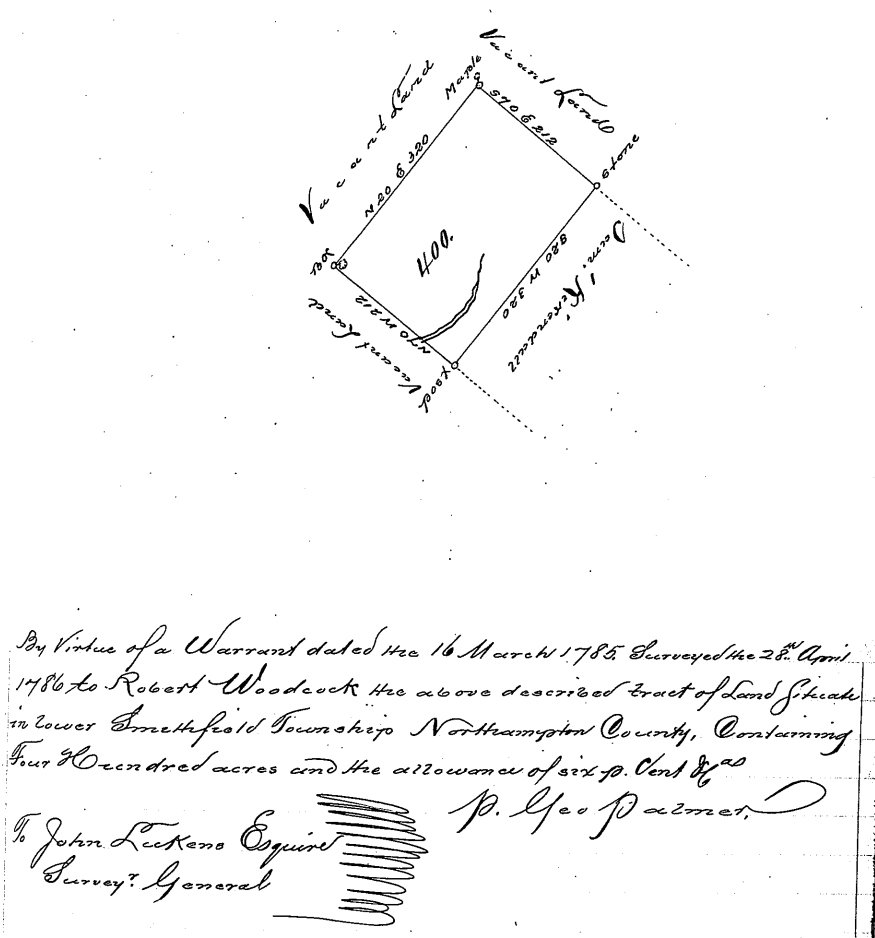 Vacant Land
Maple
S 70 E 212
Stone
Vacant Land
N 20 E 320
400.
S 20 W 320
Dan.l
N 70 W 212
Vacant Land
post
By Virtue of a Warrant dated the 16 March 1785. Surveyed the 28th April
1786 to Robert Woodcock the above described tract of Land Situate
in Lower Smethfield Township Northampton County, Containing
Four Hundred acres and the allowance of six p. Cent &ca
P. Geo Palmer,
To John Lukens Esquire
Surveyr. General